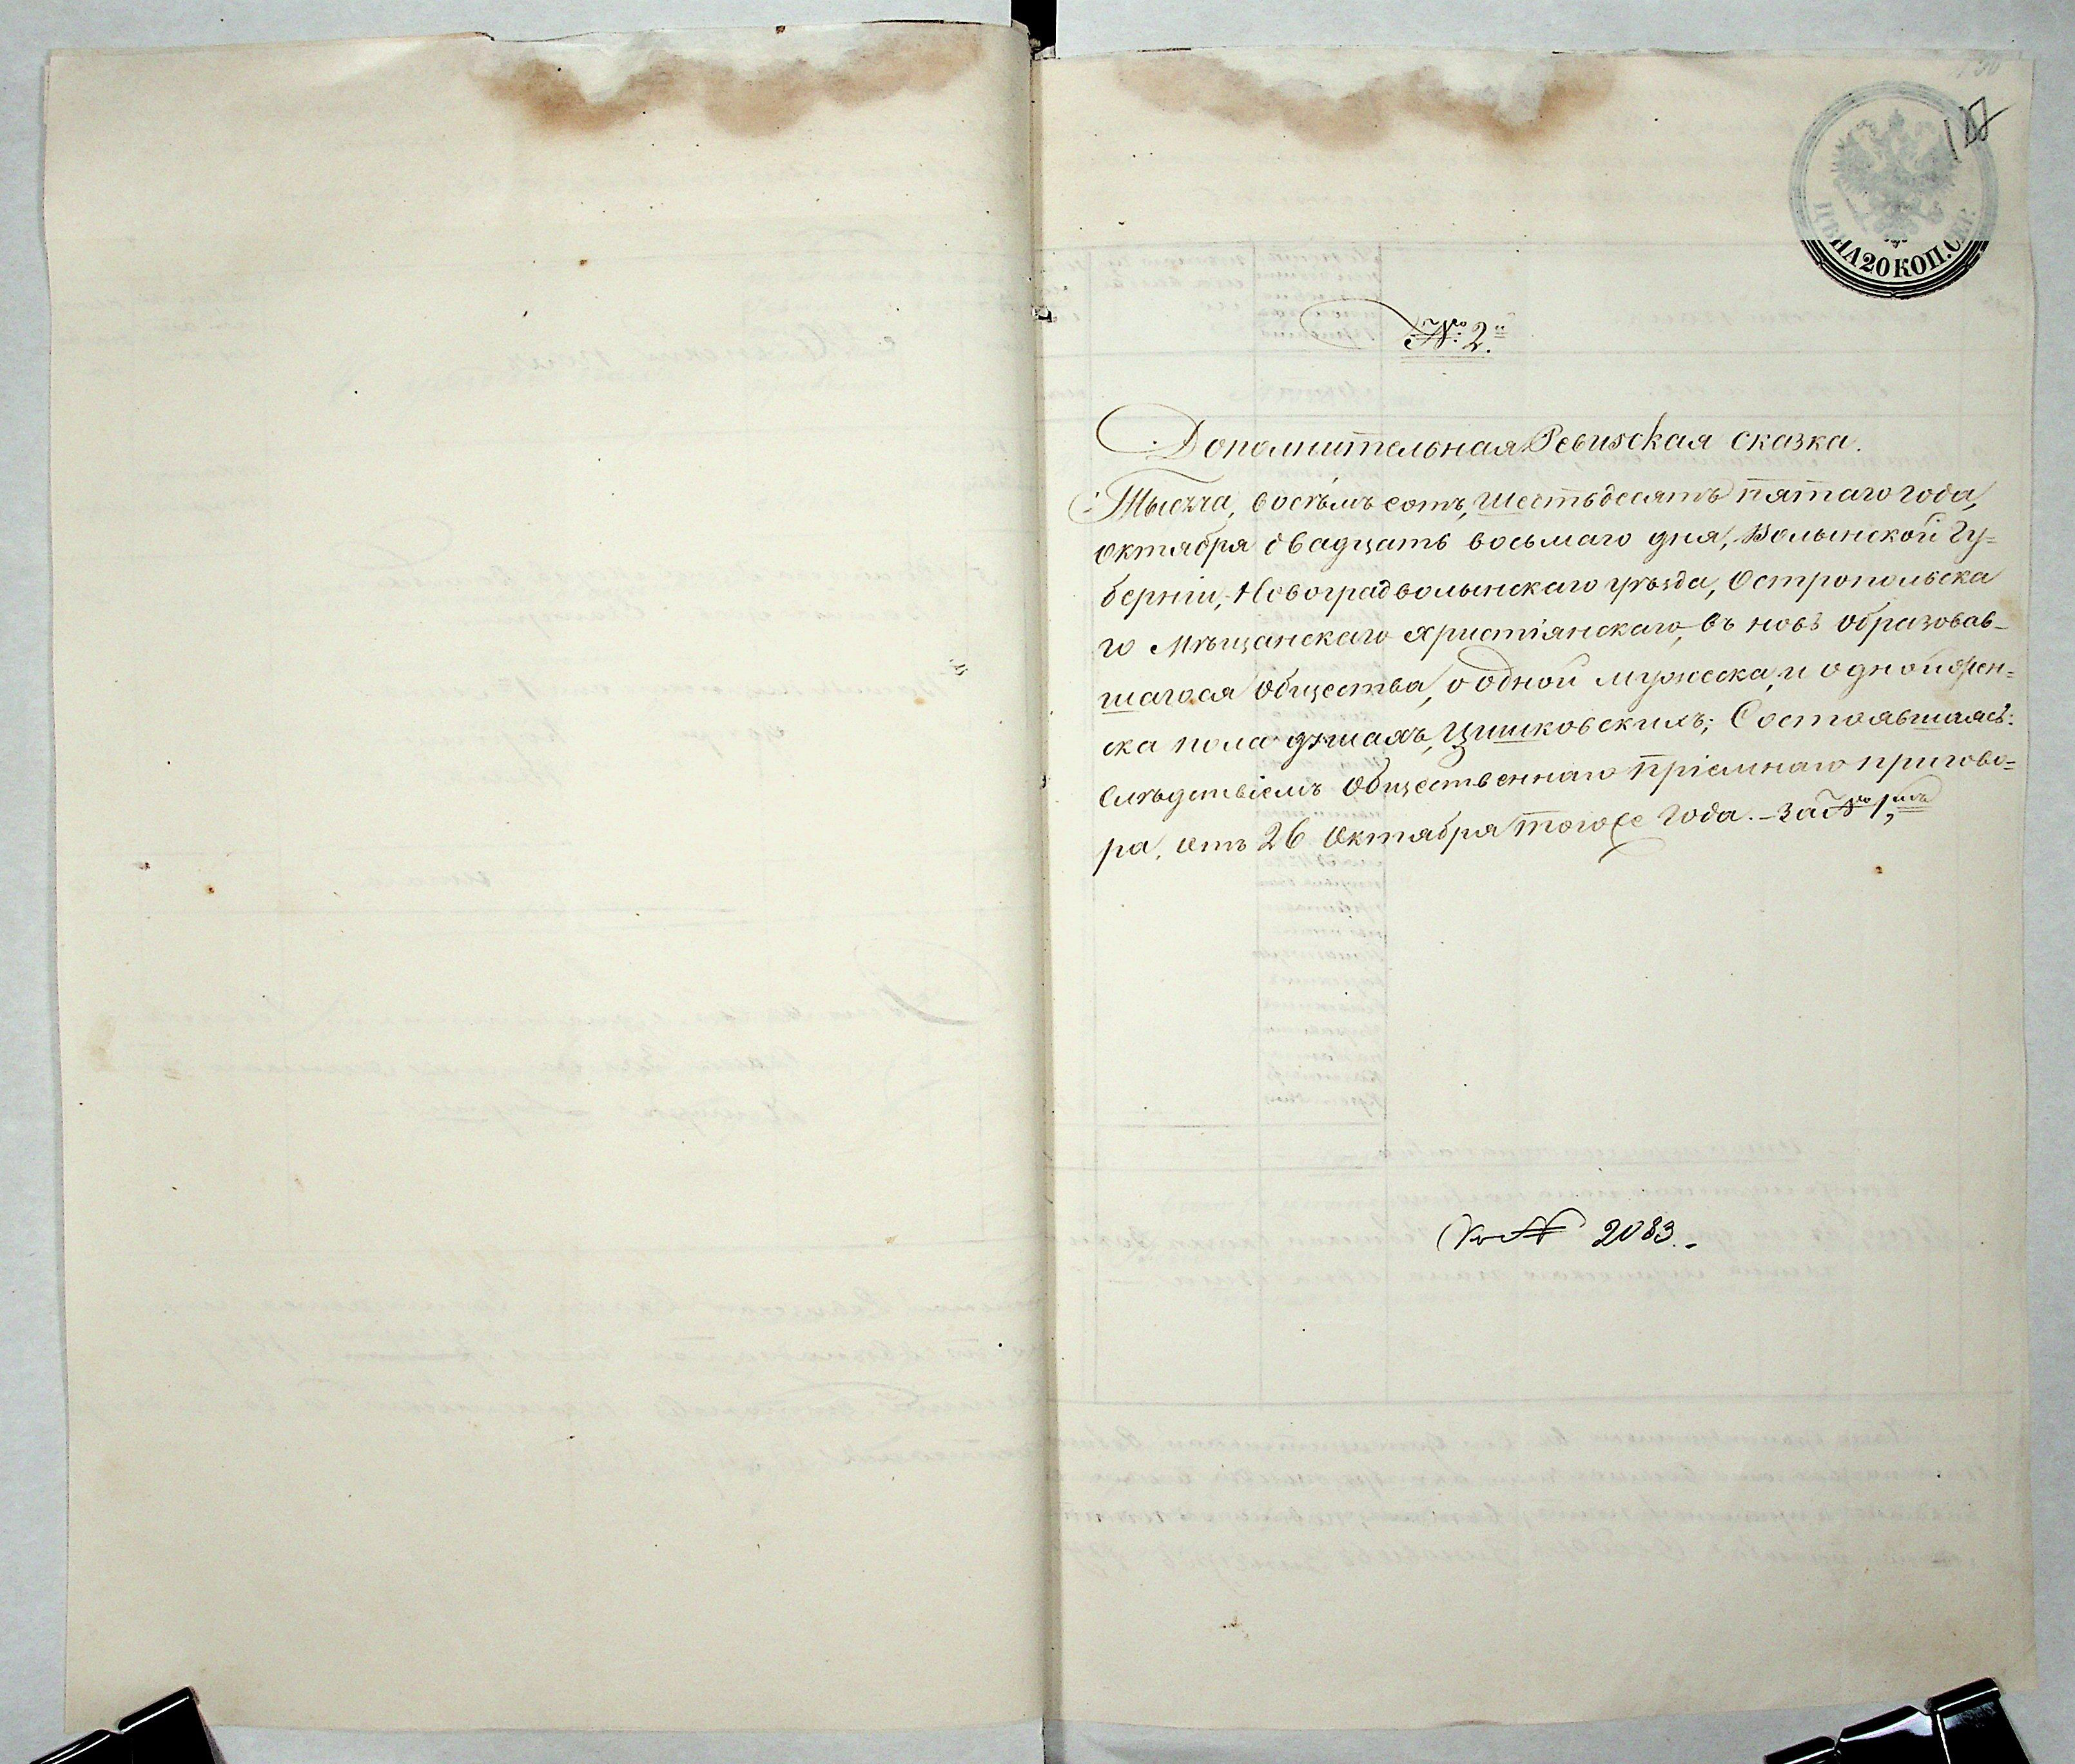 127
ЦѢНА 20 КОП. СЕР.
№ 2й
Дополнительная Ревизская сказка.
Тысяча, восѣмь сотъ, шестьдесятъ пятаго года,
Октября двадцать восьмаго дня, Волынской Гу=
берніи, Новоградволынскаго уѣзда, Остропольска
го Мѣщанскаго христіянскаго, въ новь образовав-
шагося Общества, о одной мужеска, и одной жен=
ска пола душахъ, Цишковскихъ; Состоявшаясь:
Слѣдствіемъ Общественнаго пріемнаго пригово=
ра, отъ 26 Октября того же года. – За № 1мъ
Къ № 2083.